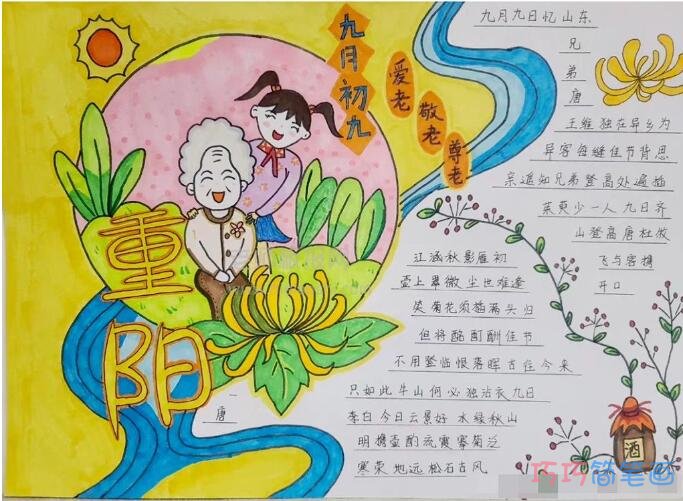 九月初九
爱老
敬老
尊老
重阳
九月九日忆山东
兄
弟
唐
王维独在异乡为
异客每缝佳节背思
亲遥知兄弟登高处遍插
茱萸少一人九日齐
山登高唐杜牧
江涵秋影雁初
飞与客携
壶上翠微尘世难逢
开口
笑菊花须插满头归
但将酩酊酬佳节
不用登临恨落晖古往今来
只如此牛山何必独沾衣九日
唐
李白今日云景好水绿秋山
明携壶酌流霞搴菊泛
寒荣地远松石古风
酒
巧巧简笔画